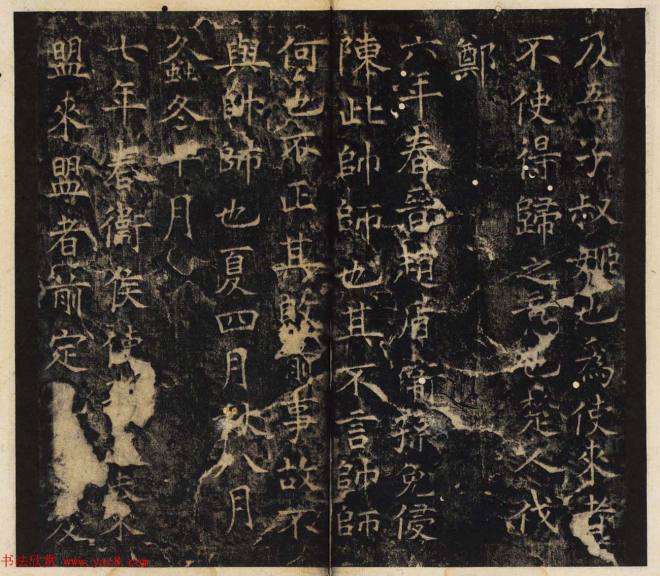 及吾子叔姬也為使來者
不使得歸之意也楚人伐
鄭
六年春晉趙盾衛孫免侵
陳此帥師也其不言帥師
何也不正其敗前事故不
與帥師也夏四月秋八月
螽冬十月
七年春衛侯使孫來
盟來盟者前定
书法欣赏 www.yac8.com